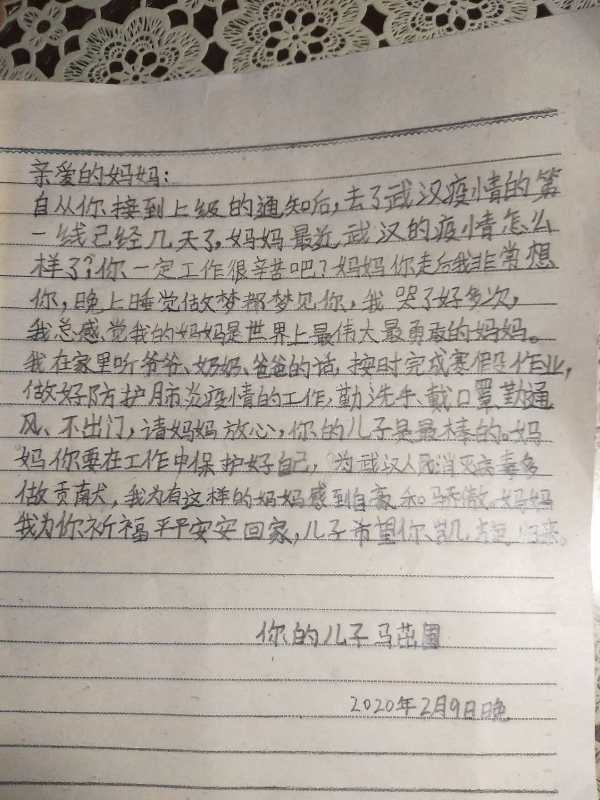 亲爱的妈妈:
自从你接到上级的通知后,去了武汉疫情的第
一线已经几天了,妈妈最近武汉的疫情怎么
样了?你一定工作很辛苦吧?妈妈你走后我非常想
你,晚上睡觉做梦都梦见你,我哭了好多次,
我总感觉我的妈妈是世界上最伟大最勇敢的妈妈。
我在家里听爷爷、奶奶、爸爸的话,按时完成寒假作业,
做好防护肺炎疫情的工作,勤洗手、戴口罩勤通
风、不出门,请妈妈放心,你的儿子是最棒的。妈
妈你要在工作中保护好自己,为武汉人民消灭病毒多
做贡献,我为有这样的妈妈感到自豪和骄傲。妈妈
我为你祈福平平安安回家,儿子希望你凯旋归来。
你的儿子马茁
2020年2月9日晚